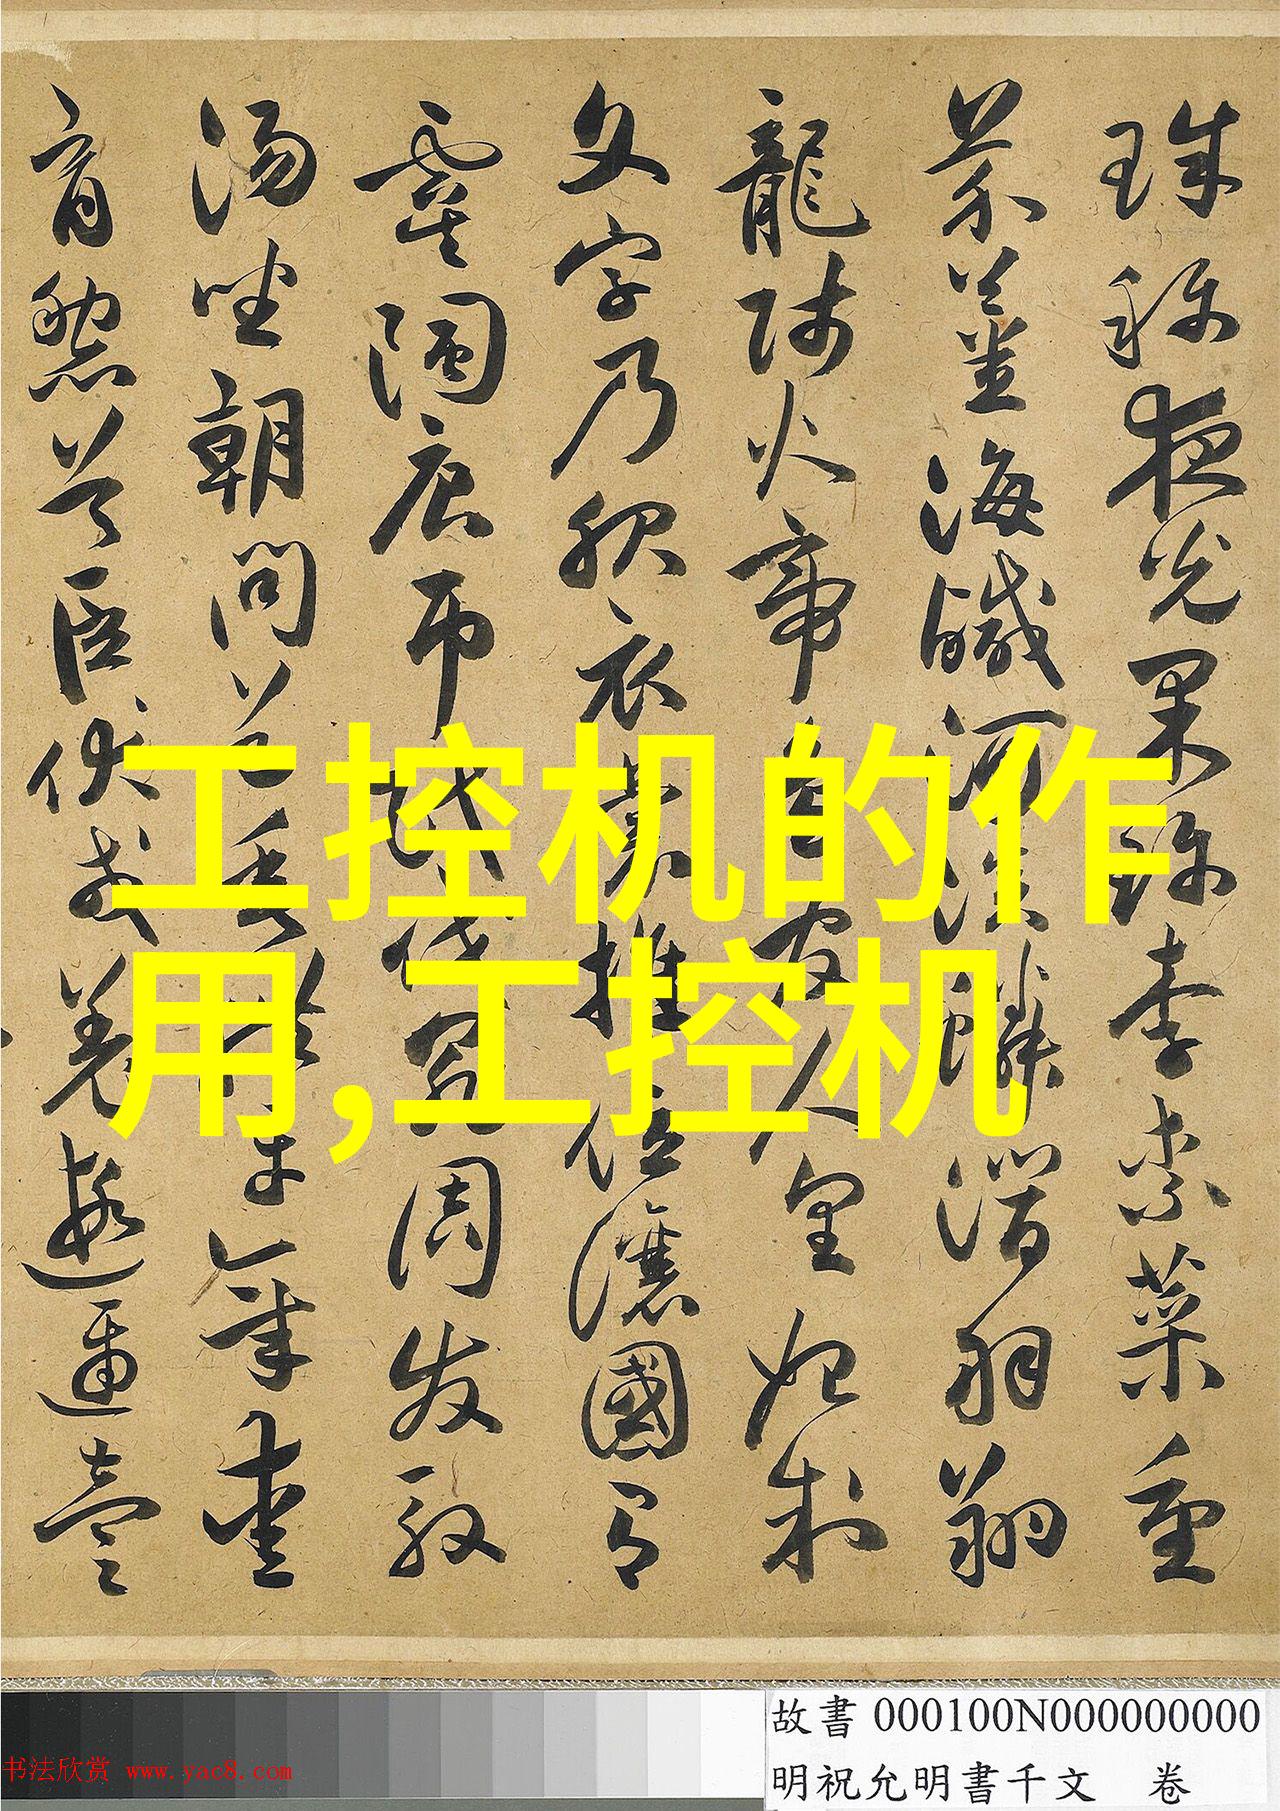 珠称夜光果珎李柰菜重
芥薑海鹹河淡鱗潜羽翔
龍師火帝鳥官人皇始制
文字乃服衣裳推位讓國有
虞陶唐弔民伐罪周发殷
湯坐朝問道垂拱平章愛
育黎首臣伏戎羌遐邇壹
工控机的作
用,工控机
故書 000100N000000000
明祝允明書千文 卷
书法欣赏 www.yac8.com